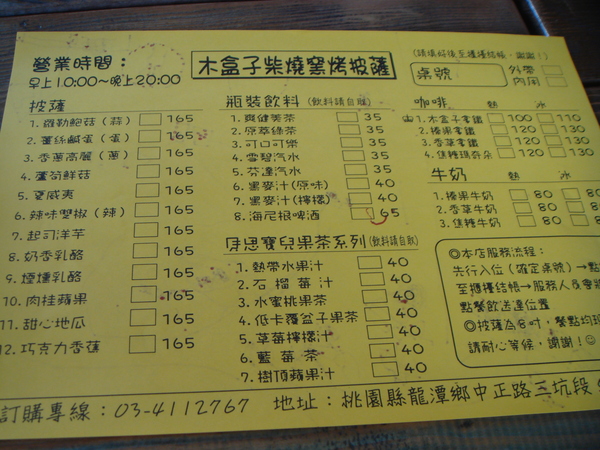 營業時間：
早上10:00~晚上20:00
木盒子柴燒窯烤披薩
(請填好後至櫃檯結帳，謝謝！)
桌號
外帶
內用
披薩
1. 羅勒鮑菇（蒜） 165
2. 薑絲鹹蛋（蛋） 165
3. 香蔥高麗（蔥） 165
4. 蘆筍鮮菇 165
5. 夏威夷 165
6. 辣味墾椒（辣） 165
7. 起司洋芋 165
8. 奶香乳酪 165
9. 煙燻乳酪 165
10. 肉桂蘋果 165
11. 甜心地瓜 165
12. 巧克力香蕉 165
瓶裝飲料 (飲料請自取)
1. 爽健美茶 35
2. 原萃綠茶 35
3. 可口可樂 35
4. 雪碧汽水 35
5. 芬達汽水 35
6. 黑麥汁(原味) 40
7. 黑麥汁(檸檬) 40
8. 海尼根啤酒 65
貝思寶兒果茶系列(飲料請自取)
1. 熱帶水果汁 40
2. 石榴莓汁 40
3. 水蜜桃果茶 40
4. 低卡覆盆子果茶 40
5. 草莓檸檬汁 40
6. 藍莓茶 40
7. 樹頂蘋果汁 40
咖啡 熱 冰
1. 木盒子拿鐵 100 110
2. 榛果拿鐵 120 130
3. 香草拿鐵 120 130
4. 焦糖瑪奇朵 120 130
牛奶 熱 冰
1. 榛果牛奶 80 80
2. 香草牛奶 80 80
3. 焦糖牛奶 80 80
◎本店服務流程：
先行入位（確定桌號）→點
至櫃檯結帳→服務人員會將
點餐飲送達位置
◎披薩為8吋，餐點均現
請耐心等候，謝謝！☺
訂購專線：03-4112767 地址：桃園縣龍潭鄉中正路三坑段